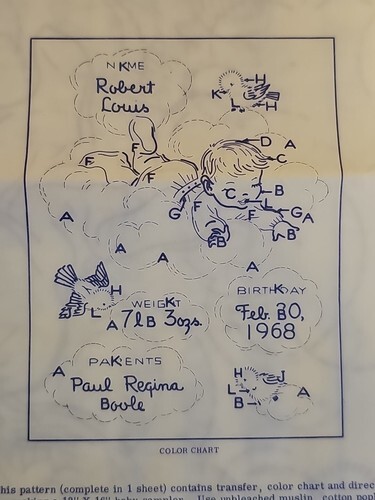 NKME
Robert
Louis
K
H
L
H
D
A
C
F
F
F
C
B
L
A
G
F
G
A
B
B
A
A
A
H
L
WEIGKT
A
7lB 3ozs.
BIRTHKDAY
Feb. B0,
1968
PAKENTS
A
Paul Regina
Bovle
H
J
L
B
A
COLOR CHART
his pattern (complete in 1 sheet) contains transfer, color chart and direc
Use unbleached muslin, cotton pop